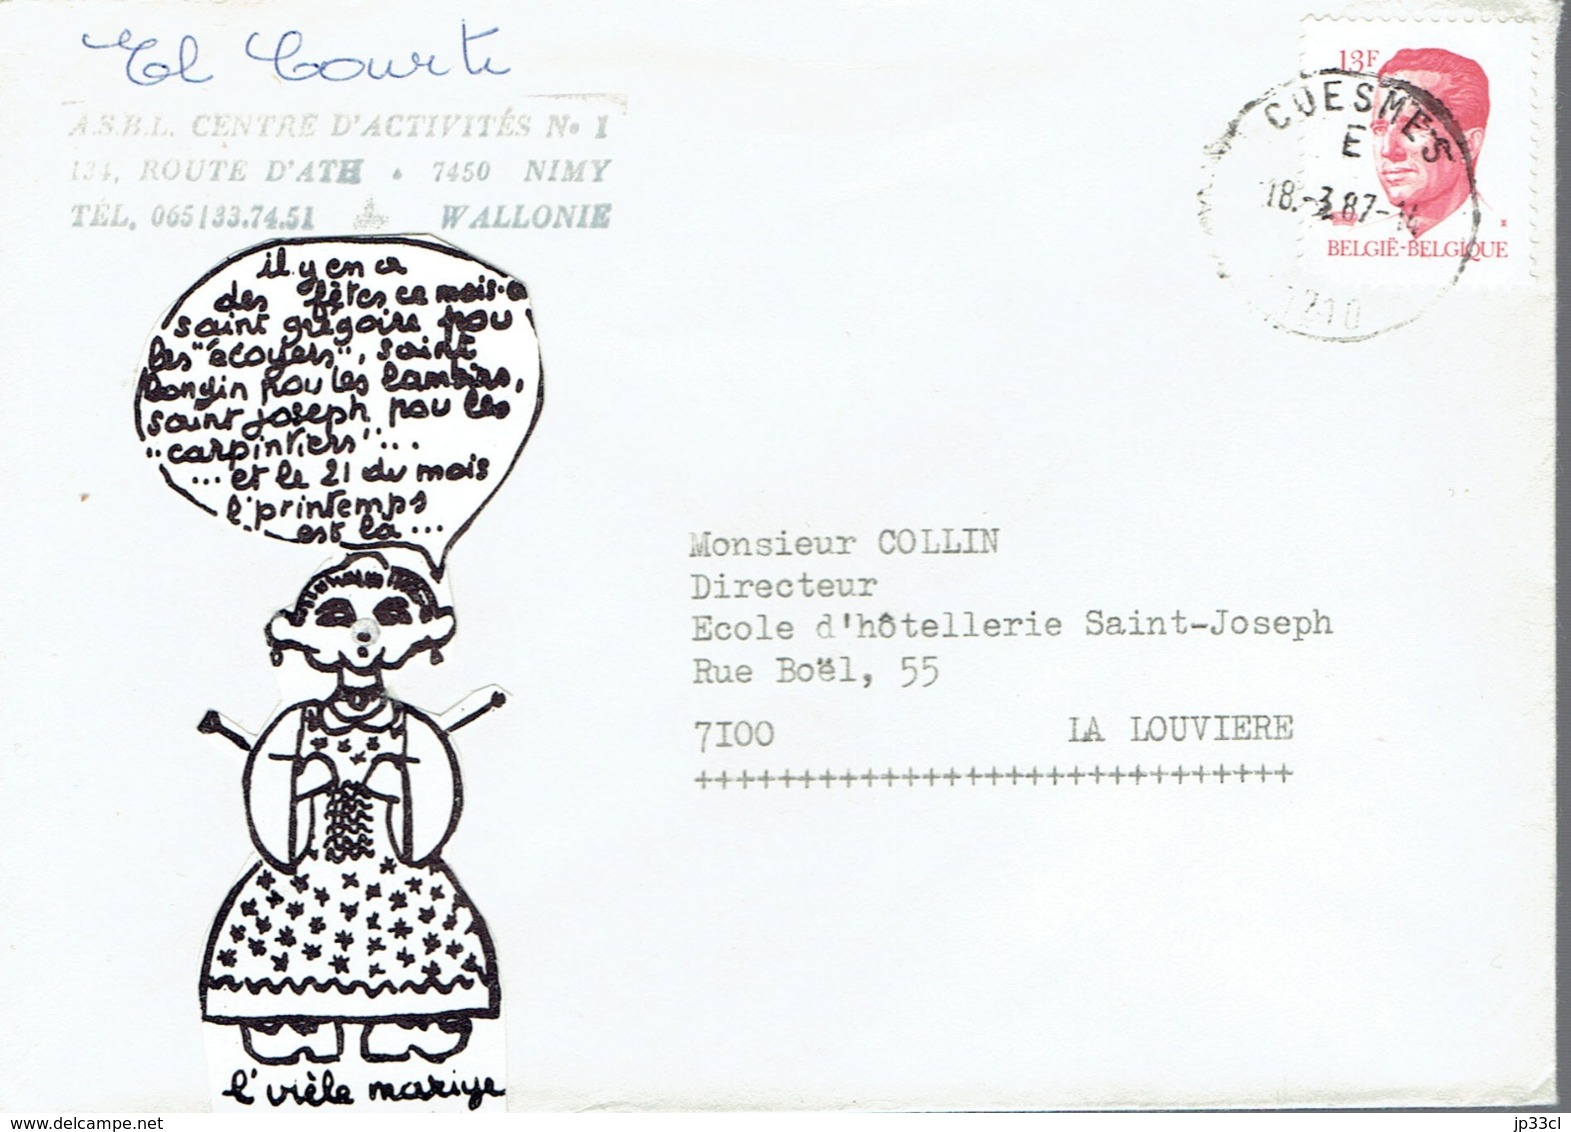 El Courti
A.S.B.L. CENTRE D'ACTIVITÉS No 1
134, ROUTE D'ATH • 7450 NIMY
TÉL. 065/33.74.51 WALLONIE
13F
BELGIË-BELGIQUE
CUESMES
E
18.-3.87-14
7210
il y en a
des fêtes ce mois-ci
saint grégoire pou
les "écoyers", saint
longin pou les lambins,
saint joseph pou les
"carpintiers"...
...et le 21 du mois
l'printemps
est là...
l'vièle mariye
Monsieur COLLIN
Directeur
Ecole d'hôtellerie Saint-Joseph
Rue Boël, 55
7I00 LA LOUVIERE
+++++++++++++++++++++++++++++
jp33cl